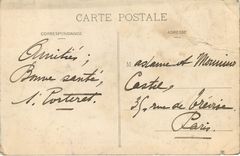 CARTE POSTALE
CORRESPONDANCE
Amitiés;
Bonne santé
ADRESSE
Madame et Monsieur
Castel
35, rue de Trévise
Paris.